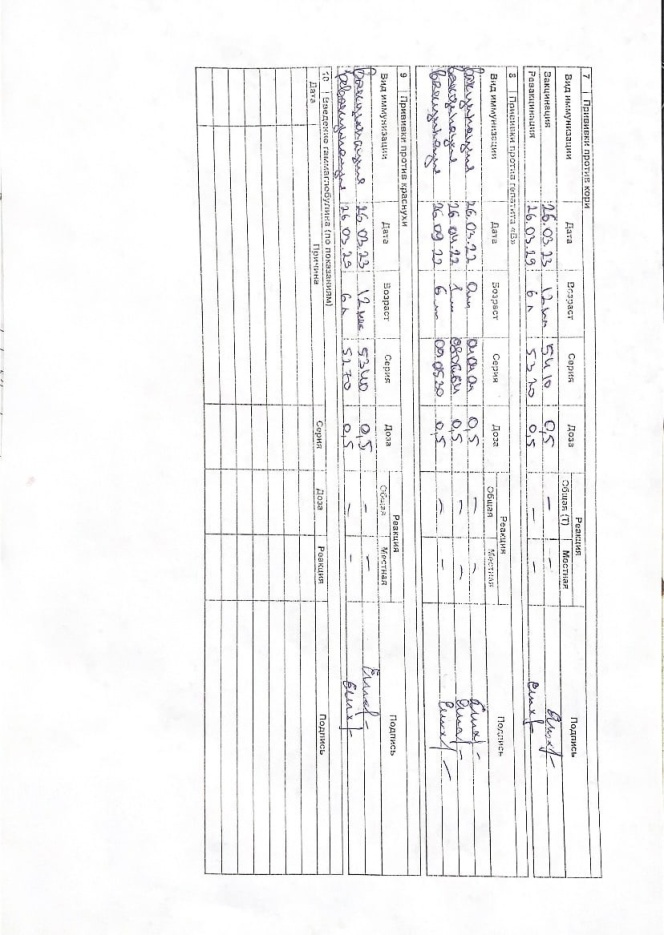 7 Прививки против кори
Вид иммунизации Дата Возраст Серия Доза Реакция Подпись
Общая (Т) Местная
Вакцинация 26.03.23 12 мес 5410 0,5 — —
Ревакцинация 26.03.29 6 л 5320 0,5 — —
8 Прививки против гепатита «В»
Вид иммунизации Дата Возраст Серия Доза Реакция Подпись
Общая Местная
вакцинация 26.03.22 0,5 — —
вакцинация 26.04.22 0,5 — —
вакцинация 26.09.22 6 м 090520 0,5 — —
9 Прививки против краснухи
Вид иммунизации Дата Возраст Серия Доза Реакция Подпись
Общая Местная
Вакцинация 26.03.23 12 мес 5340 0,5 — —
ревакцинация 26.03.29 6 л 5270 0,5 — —
10 Введение гаммаглобулина (по показаниям)
Дата Причина Серия Доза Реакция Подпись